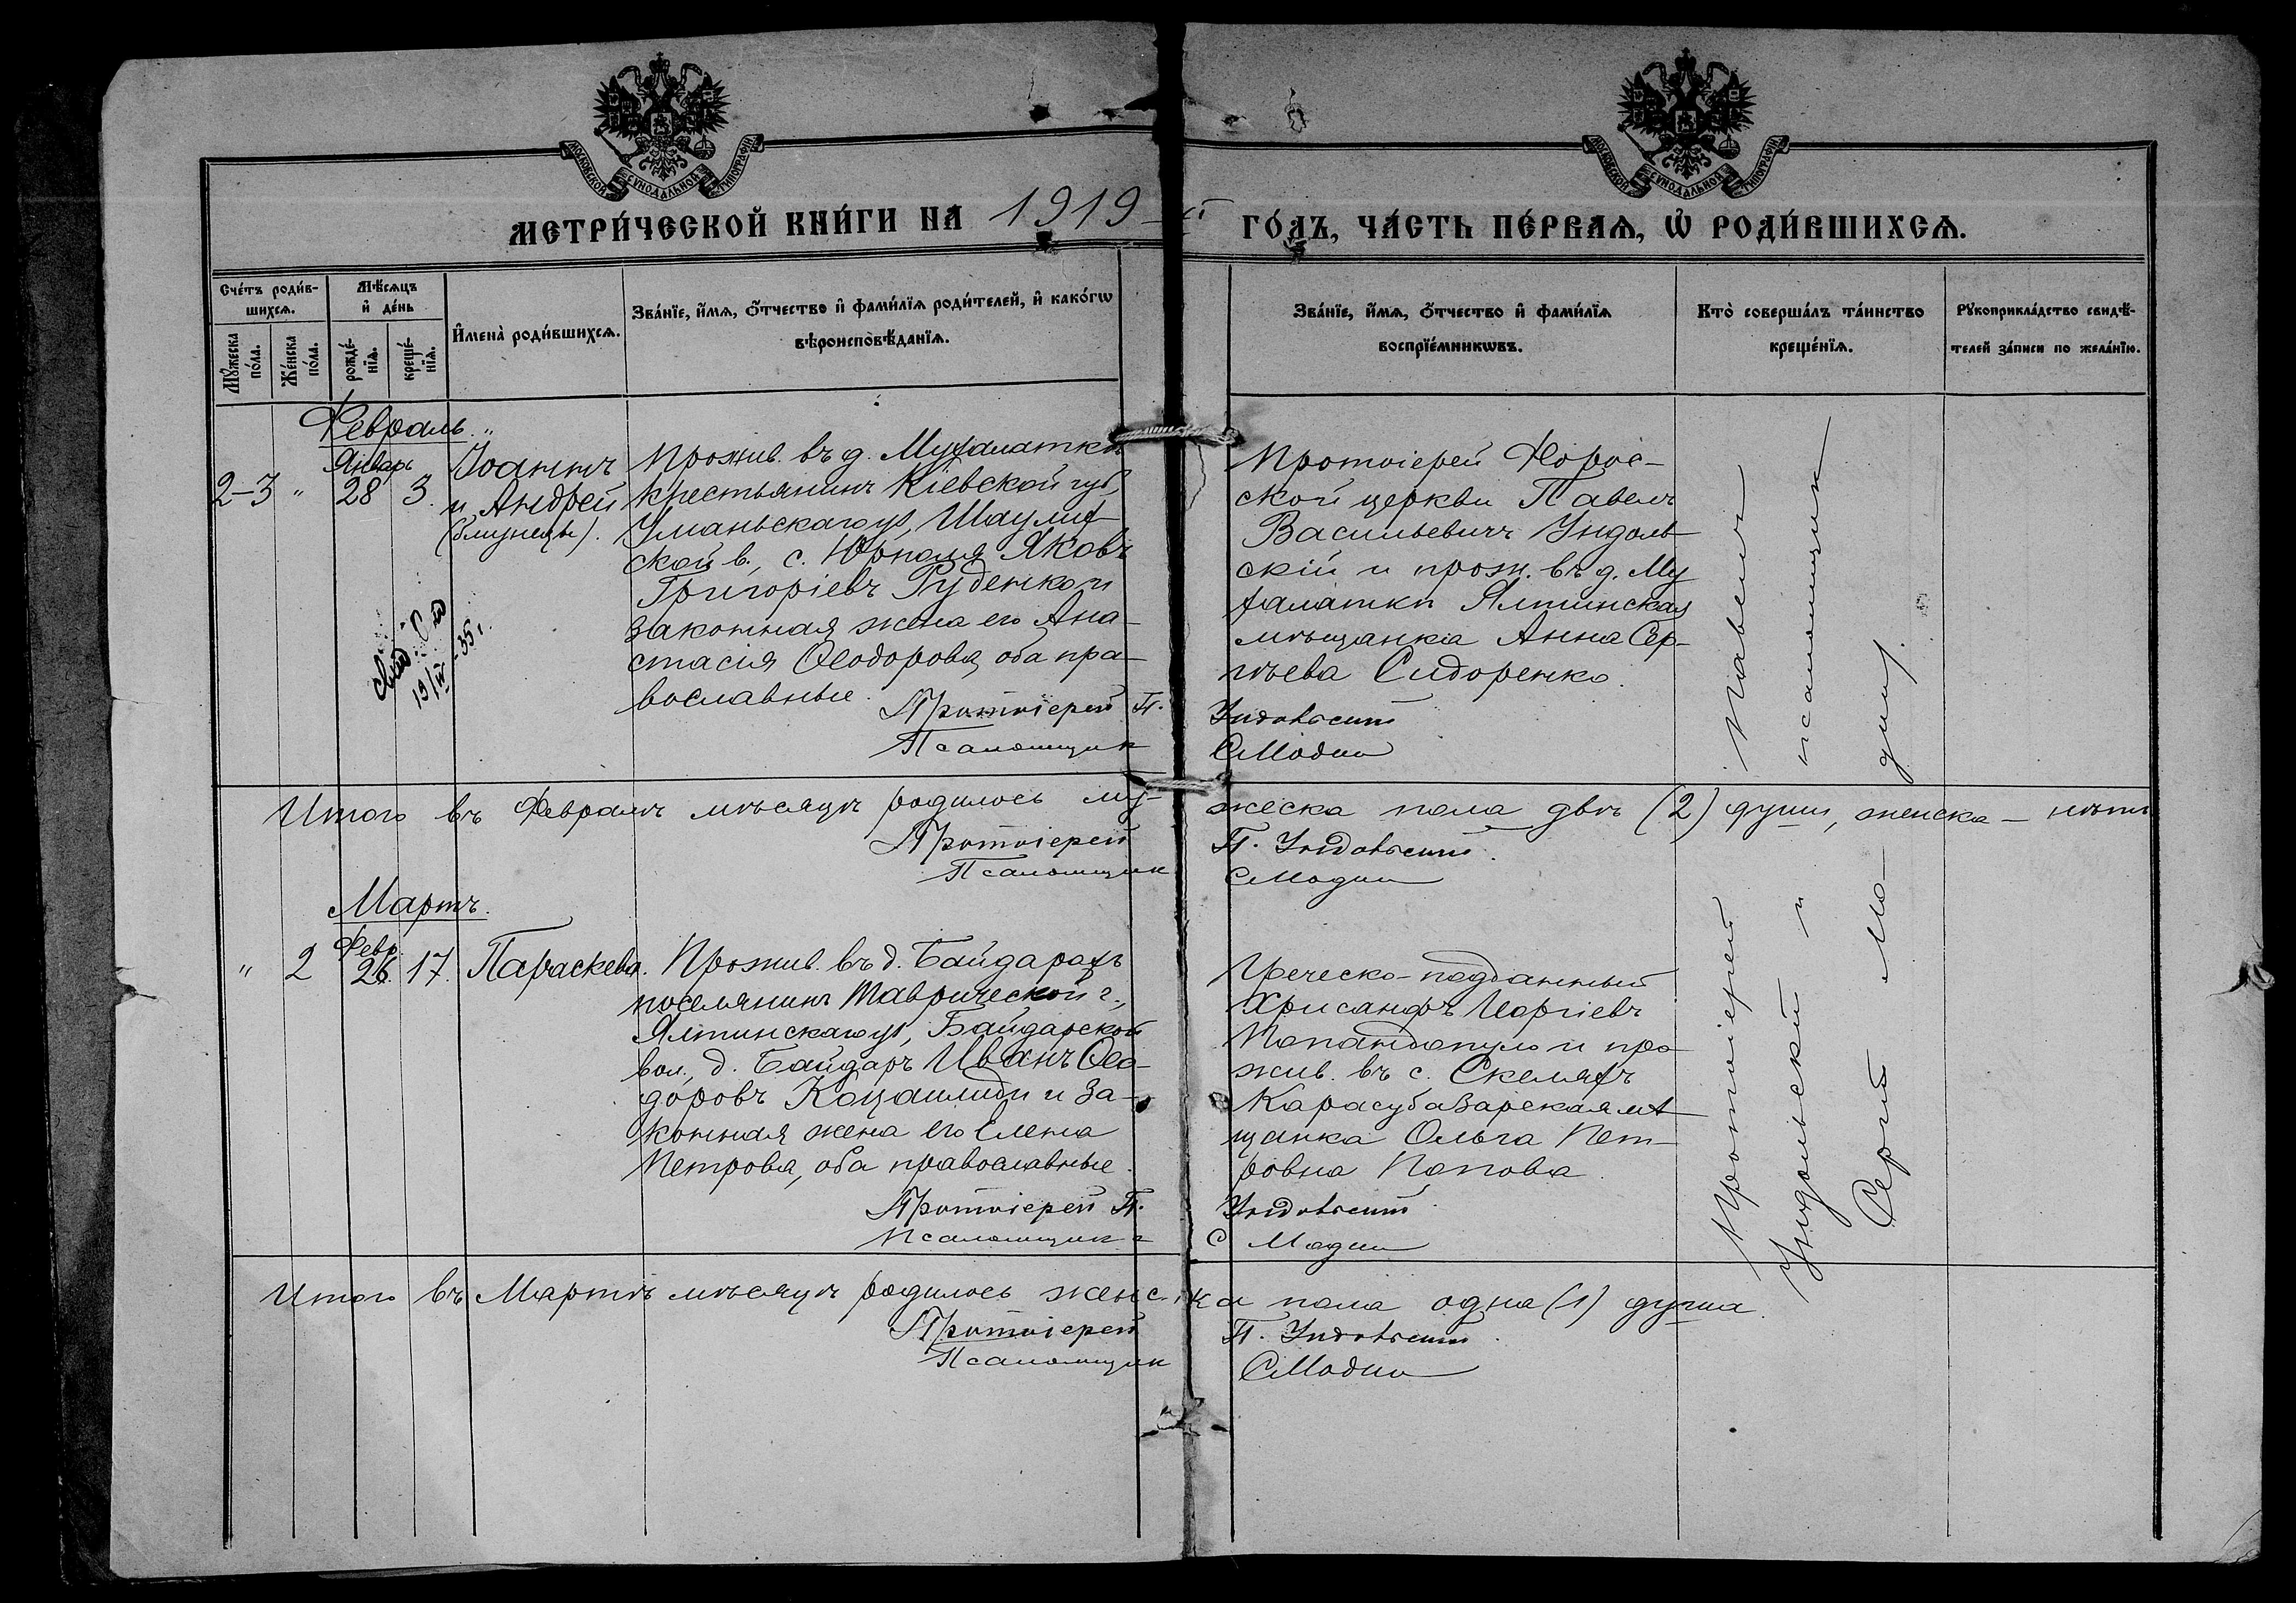 МОСКОВСКОЙ СѴНОДАЛЬНОЙ ТИПОГРАФІИ
МОСКОВСКОЙ СѴНОДАЛЬНОЙ ТИПОГРАФІИ
МЕТРИ́ЧЕСКОЙ КНИ́ГИ НА 1919-й ГО́ДЪ, ЧА́СТЬ ПЕ́РВАѦ, Ѡ҆ РОДИ́ВШИХСѦ.
Сче́тъ роди́в-
шихсѧ.
Мꙋ́жеска
по́ла.
Же́нска
по́ла.
Мѣ́сѧцъ
и҆ де́нь
рожде́-
нїѧ.
креще́-
нїѧ.
И҆мена̀ роди́вшихсѧ.
Зва́нїе, и҆́мѧ, ѻ҆́тчество и҆ фами́лїѧ роди́телей, и҆ како́гѡ
вѣроисповѣ́данїѧ.
Зва́нїе, и҆́мѧ, ѻ҆́тчество и҆ фами́лїѧ
воспрїе́мникѡвъ.
Кто̀ соверша́лъ та́инство
креще́нїѧ.
Рꙋкоприкла́дство свидѣ́-
телей за́писи по жела́нїю.
Февраль.
2-3 " Январь 28 3.
Іоаннъ
и Андрей
(близнецы).
Прожив. въ д. Мухалаткѣ
крестьянинъ Кіевской губ.,
Уманьскаго у.,
ской в., с. Яковъ
Григоріевъ Руденко и
законная жена его Ана-
стасія Ѳеодорова, оба пра-
вославные.
Протоіерей Форос-
ской церкви Павелъ
Васильевичъ Ундоль-
скій и прож. въ д. Му
халатки Ялтинская
мѣщанка Анна Сер-
гѣева Сидоренко.
Протоіерей П. Ундольскій
Псаломщикъ С Модин
19/IV-35 г.
Итого въ Февралѣ мѣсяцѣ родилось му-жеска пола двѣ (2) души, женска - нѣтъ
Протоіерей П. Ундольскій
Псаломщик С Модин
Мартъ.
" 2 Февр. 26. 17. Параскева.
Прожив. въ д. Байдарахъ
поселянинъ Таврической г.,
Ялтинскаго у., Байдарской
вол., д. Байдаръ Иванъ Ѳео-
доровъ и за-
конная жена его Елена
Петрова, оба православные.
Греческо-подданный
Хрисанфъ Иоргіевъ
Папандопуло и про
жив. въ с. Скеляхъ
Карасубазарская мѣ
щанка Ольга Пет-
ровна Попова.
Протоіерей П. Ундольскій
Псаломщикъ С Модин
Протоіерей Павелъ
Ундольскій и псаломщик
Сергій Мо-дин.
Итого въ Мартѣ мѣсяцѣ родилось женска пола одна (1) душа.
Протоіерей П. Ундольскій
Псаломщик С Модин